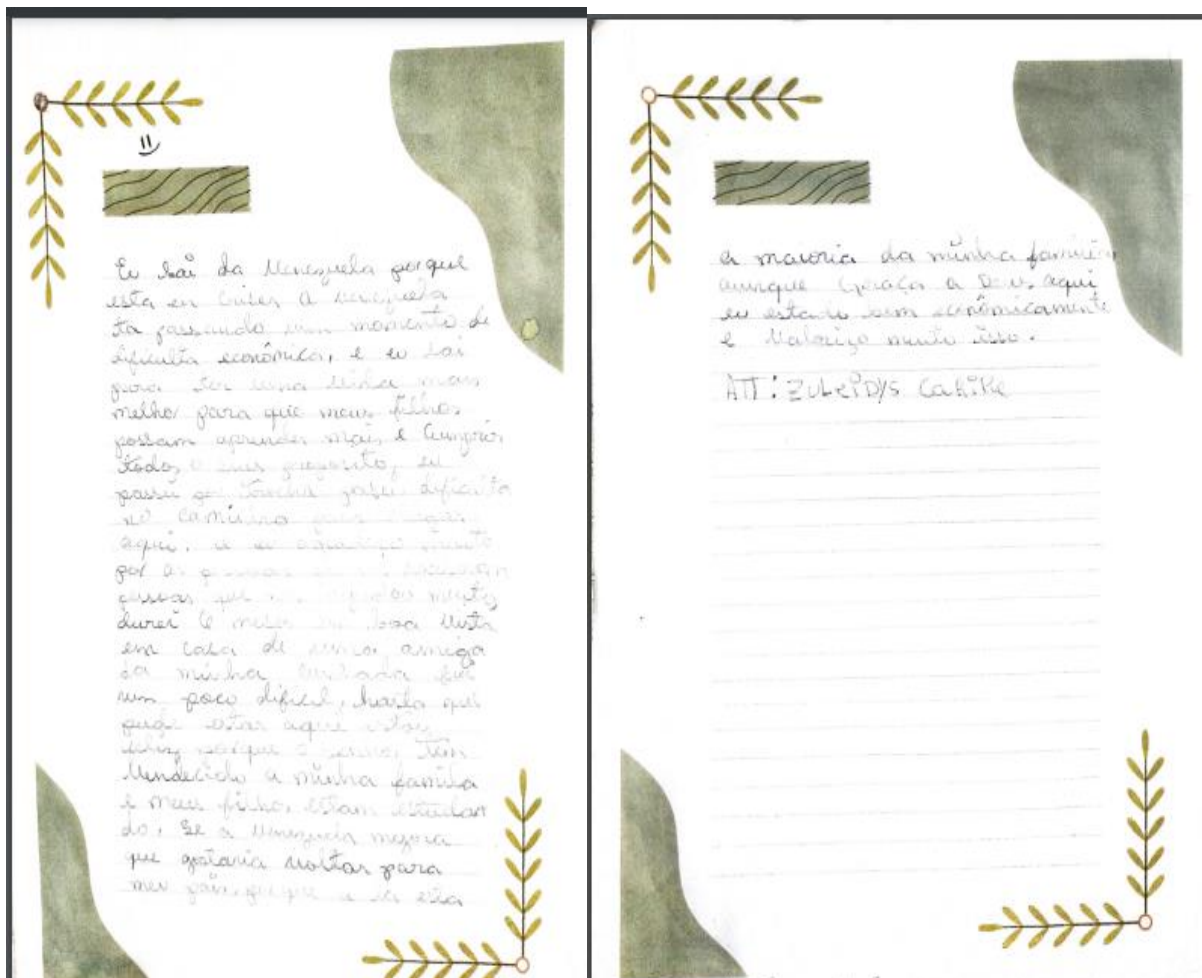 Eu sai da Venezuela porque
esta en crises a venezuela
ta passando um momento de
dificulta econômica, e eu sai
para ter uma vida mais
melhor para que meus filhos
possam aprender mais e cumprir
todos o seus proposito, eu
passei por
no caminho para chegar
aqui. e eu agradeço muito
por as pessoas
pessoas que muito
durei 6 meses en boa vista
em casa de uma amiga
da minha cunhada foi
um poco dificil, hasta que
pude estar aqui estou
feliz porque o senhor tem
bendecido a minha familia
e meus filhos estam estudan
do, se a Venezuela mejora
que gostaria voltar para
meu pais, porque a la esta
a maioria da minha familia,
aunque Graças a Deus aqui
eu estado bem econômicamente
e valorizo muito isso.
ATT: ZULEIDYS CARIKE